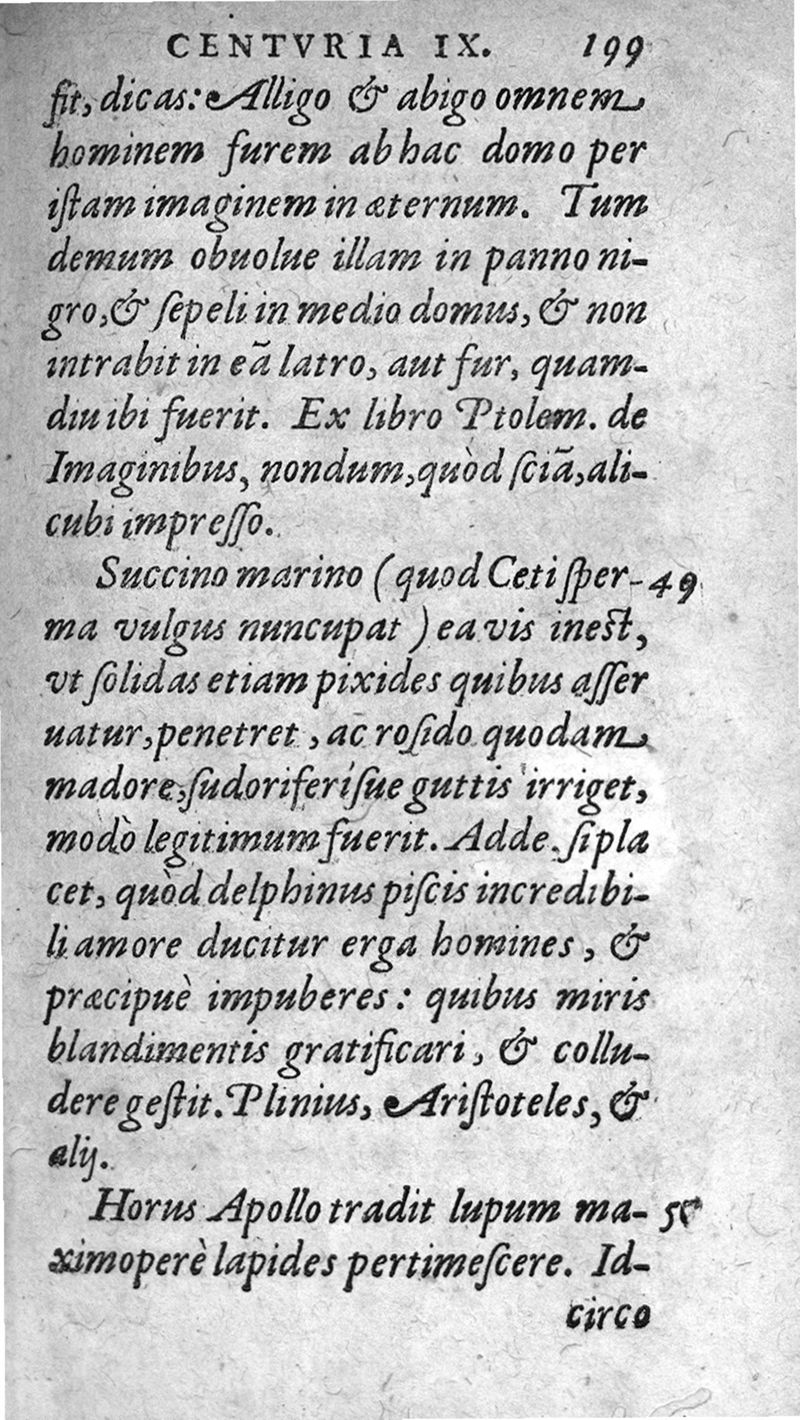 CENTVRIA IX. 199
ſit, dicas: Alligo & abigo omnem
hominem furem ab hac domo per
iſtam imaginem in æternum. Tum
demum obuolue illam in panno ni-
gro, & ſepeli in medio domus, & non
intrabit in eā latro, aut fur, quam-
diu ibi fuerit. Ex libro Ptolem. de
Imaginibus, nondum, quòd ſciā, ali-
cubi impreſſo.
Succino marino (quod Ceti ſper- 49
ma vulgus nuncupat) ea vis ineſt,
vt ſolidas etiam pixides quibus aſſer
uatur, penetret, ac roſido quodam
madore, ſudoriferiſue guttis irriget,
modò legitimum fuerit. Adde, ſi pla
cet, quòd delphinus piſcis incredibi-
li amore ducitur erga homines, &
præcipuè impuberes: quibus miris
blandimentis gratificari, & collu-
dere geſtit. Plinius, Ariſtoteles, &
alij.
Horus Apollo tradit lupum ma- 50
ximoperè lapides pertimeſcere. Id-
circo